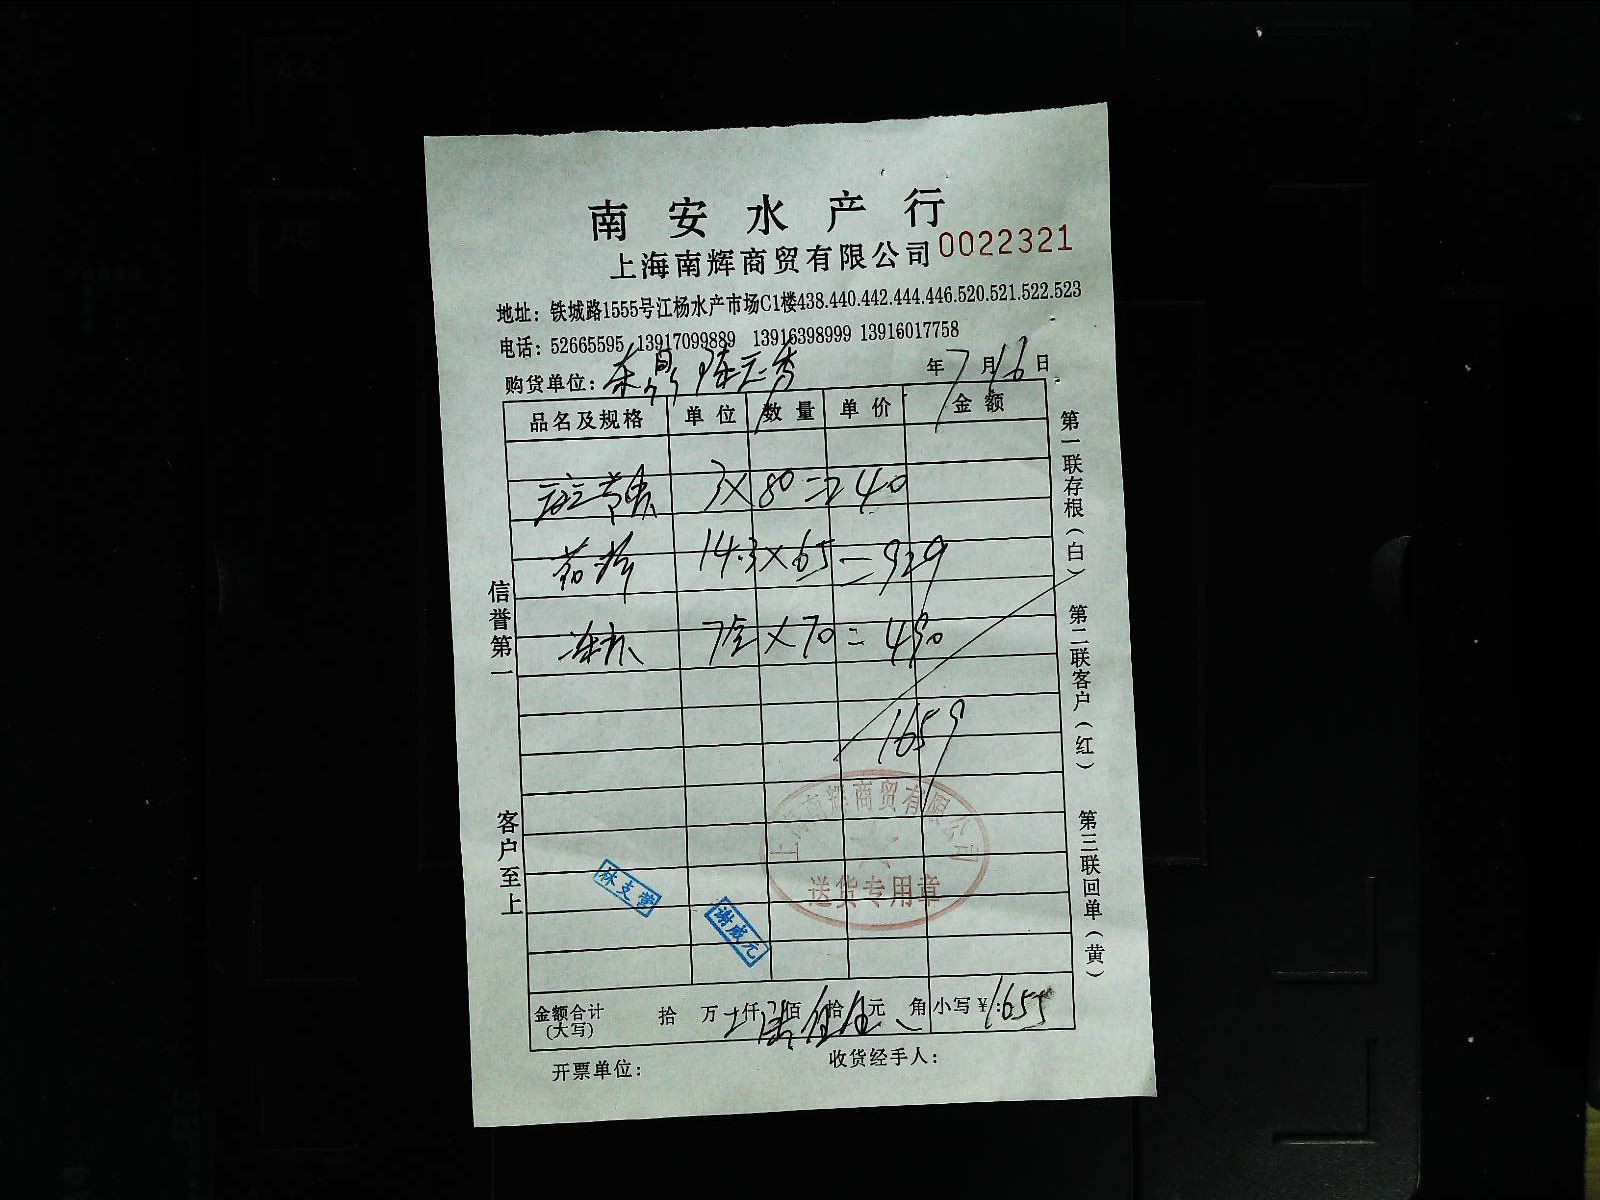 南安水产行
上海南辉商贸有限公司 0022321
地址：铁城路1555号江杨水产市场C1楼438.440.442.444.446.520.521.522.523
电话：52665595 13917099889 13916398999 13916017758
购货单位： 年7月16日
品名及规格 单位 数量 单价 金额
3×80=240
14.3×65=929
7×70=490
1659
信誉第一
客户至上
第一联存根（白）
第二联客户（红）
第三联回单（黄）
上海南辉商贸有限公司
送货专用章
林支萱
谢成元
金额合计（大写） 拾 万 仟 佰 拾 元 角 小写￥：1655
开票单位： 收货经手人：